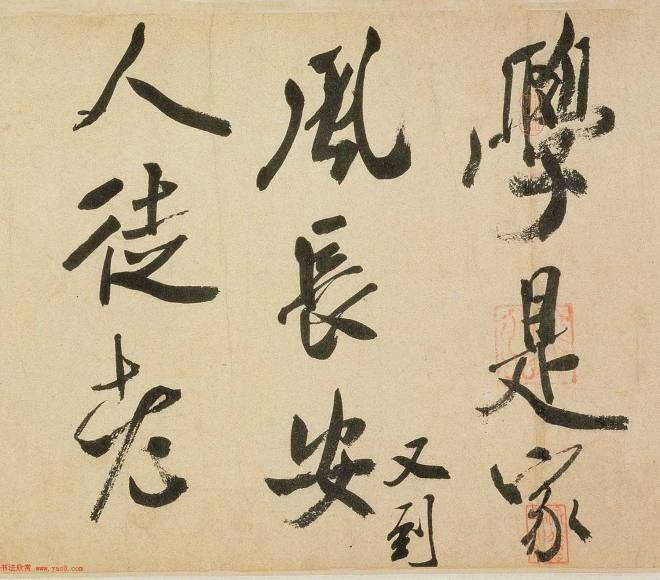 學是家
風長安
又到
人徒老
书法欣赏 www.yac8.com